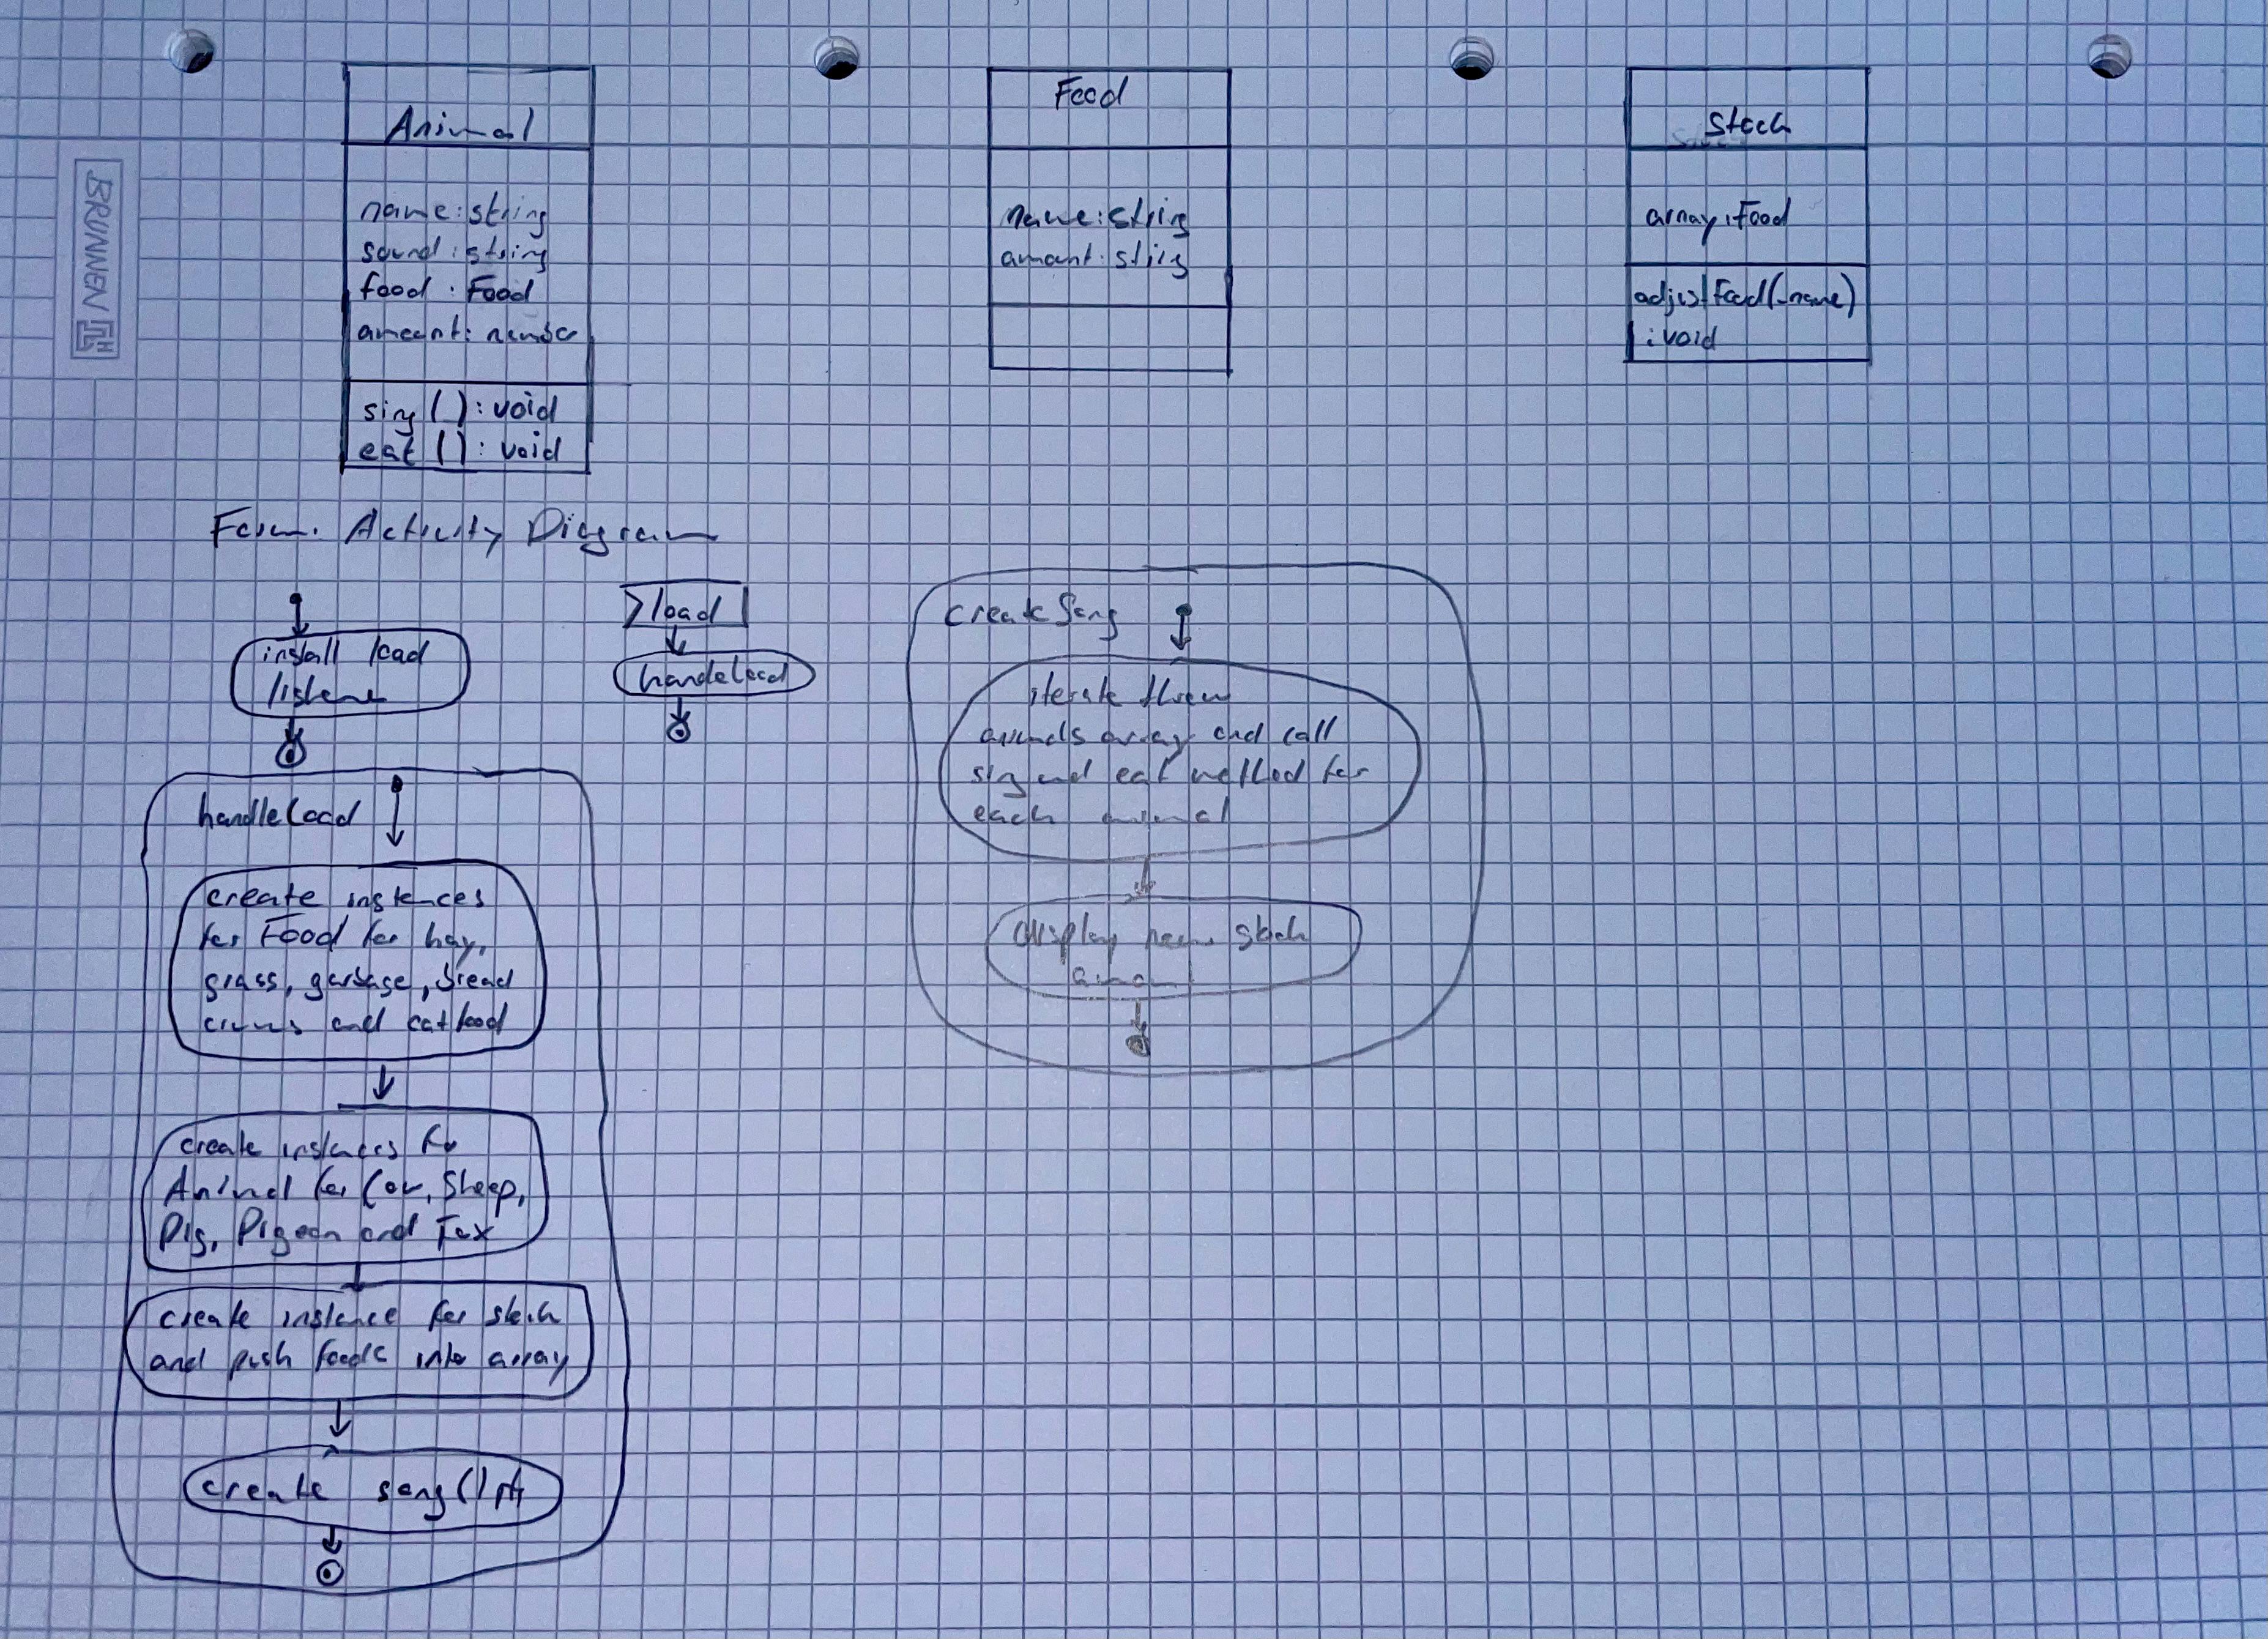 Animal
name: string
sound: string
food : Food
amount:
sing ( ) : void
eat ( ) : void
Food
name: string
amount: string
Stock
array: Food
adjustFood(_name)
: void
BRUNNEN
Farm: Activity Diagram
install load
listener
load
handleLoad
handleLoad
create instances
for Food for hay,
grass, garbage, bread
and catfood
create instances for
Animal for Cow, Sheep,
Pig, Pigeon and Fox
create instance for stock
and push foods into array
create song()
createSong
iterate
array and call
sing and eat method for
each animal
display new stock
amount